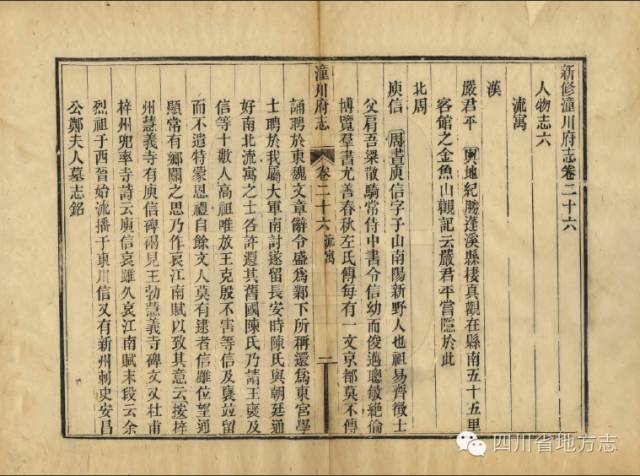 新修潼川府志卷二十六
人物志六
流寓
漢
嚴君平 輿地紀勝蓬溪縣棲真觀在縣南五十五里
客館之金魚山觀記云嚴君平嘗隱於此
北周
庾信 周書庾信字子山南陽新野人也祖易齊徵士
父肩吾梁散騎常侍中書令信幼而俊邁聰敏絕倫
博覽羣書尤善春秋左氏傳每有一文京都莫不傳
潼川府志
卷二十六 流寓
二
誦聘於東魏文章辭令盛爲鄴下所稱還爲東宮學
士聘於我屬大軍南討遂留長安時陳氏與朝廷通
好南北流寓之士各許還其舊國陳氏乃請王襃及
信等十數人高祖唯放王克殷不害等信及襃並留
而不遣特蒙恩禮自餘文人莫有逮者信雖位望通
顯常有鄉關之思乃作哀江南賦以致其意云按梓
州慧義寺有庾信碑兩見王勃慧義寺碑文又杜甫
梓州兜率寺詩云庾信哀雖久哀江南賦末段云余
烈祖于西晉始流播于東川信又有新州刺史安昌
公鄭夫人墓志銘
四川省地方志